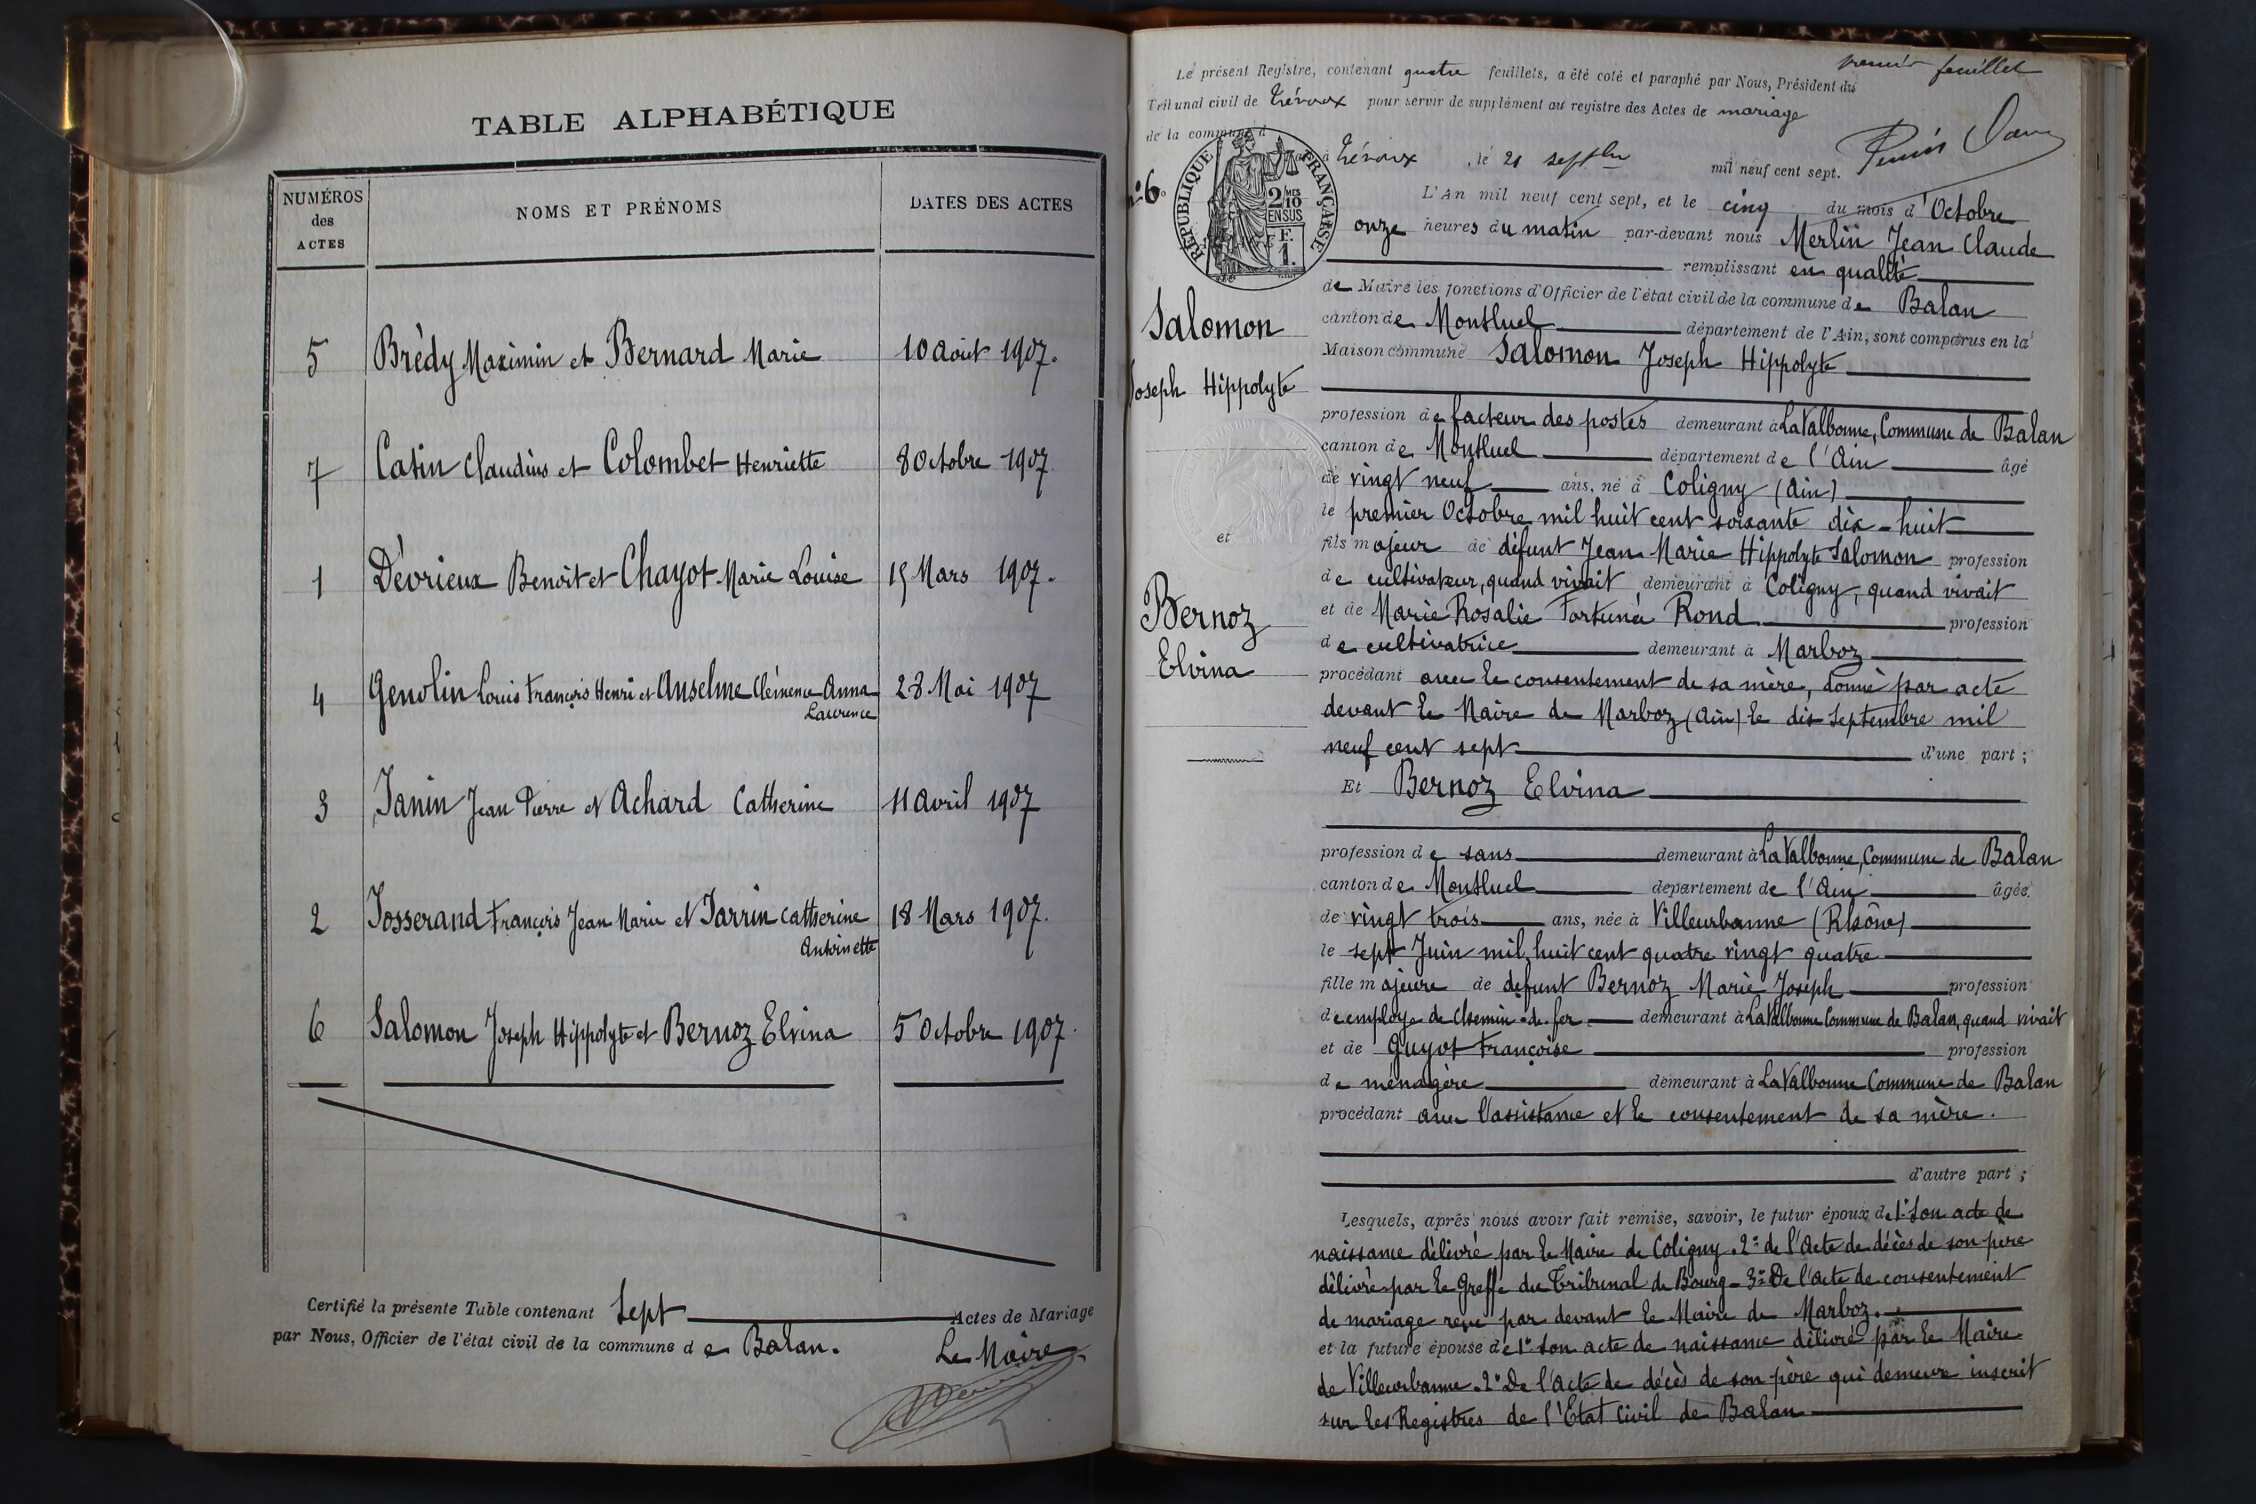 TABLE ALPHABÉTIQUE
NUMÉROS des ACTES
NOMS ET PRÉNOMS
DATES DES ACTES
5 Brèdy Maximin et Bernard Marie 10 août 1907.
7 Catin Claudius et Colombet Henriette 8 Octobre 1907
1 Dévrieux Benoît et Chayot Marie Louise 15 Mars 1907.
4 Genolin Louis François Henri et Anselme Clémence Anna 28 Mai 1907
Laurence
3 Janin Jean Pierre et Achard Catherine 11 Avril 1907
2 Josserand François Jean Marie et Jarrin Catherine 18 Mars 1907.
Antoinette
6 Salomon Joseph Hippolyte et Bernoz Elvina 5 Octobre 1907.
Certifié la présente Table contenant Sept Actes de Mariage
par Nous, Officier de l'état civil de la commune de Balan.
Le Maire
premier feuillet
Le présent Registre, contenant quatre feuillets, a été coté et paraphé par Nous, Président du
Tribunal civil de Trévoux pour servir de supplément au registre des Actes de mariage
de la commune d
à Trévoux, le 21 septbre mil neuf cent sept.
RÉPUBLIQUE FRANÇAISE
2/10 MES
EN SUS
F.
1.
N° 6.
L'An mil neuf cent sept, et le cinq du mois d'Octobre
onze heures du matin par-devant nous Merlin Jean Claude
remplissant en qualité
de Maire les fonctions d'Officier de l'état civil de la commune de Balan
Salomon
canton de Montluel département de l'Ain, sont comparus en la
Maison commune Salomon Joseph Hippolyte
Joseph Hippolyte
profession de facteur des postes demeurant à La Valbonne, Commune de Balan
canton de Montluel département de l'Ain âgé
de vingt neuf ans, né à Coligny (Ain)
le premier Octobre mil huit cent soixante dix-huit
et
fils majeur de défunt Jean Marie Hippolyte Salomon profession
de cultivateur, quand vivait demeurant à Coligny, quand vivait
Bernoz
et de Marie Rosalie Fortunée Rond profession
de cultivatrice demeurant à Marboz
Elvina
procédant avec le consentement de sa mère, donné par acte
devant le Maire de Marboz (Ain) le dix Septembre mil
neuf cent sept d'une part;
Et Bernoz Elvina
profession de sans demeurant à La Valbonne, Commune de Balan
canton de Montluel département de l'Ain âgée
de vingt trois ans, née à Villeurbanne (Rhône)
le sept Juin mil huit cent quatre vingt quatre
fille majeure de défunt Bernoz Marie Joseph profession
de employé de Chemin-de-fer demeurant à La Valbonne Commune de Balan, quand vivait
et de Guyot Françoise profession
de ménagère demeurant à La Valbonne Commune de Balan
procédant avec l'assistance et le consentement de sa mère.
d'autre part;
Lesquels, après nous avoir fait remise, savoir, le futur époux de 1° Son acte de
naissance délivré par le Maire de Coligny. 2° de l'acte de décès de son père
délivré par le Greffe du Tribunal de Bourg - 3° De l'acte de consentement
de mariage reçu par devant le Maire de Marboz.
et la future épouse de 1° son acte de naissance délivré par le Maire
de Villeurbanne. 2° De l'acte de décès de son père qui demeure inscrit
sur les Registres de l'Etat Civil de Balan